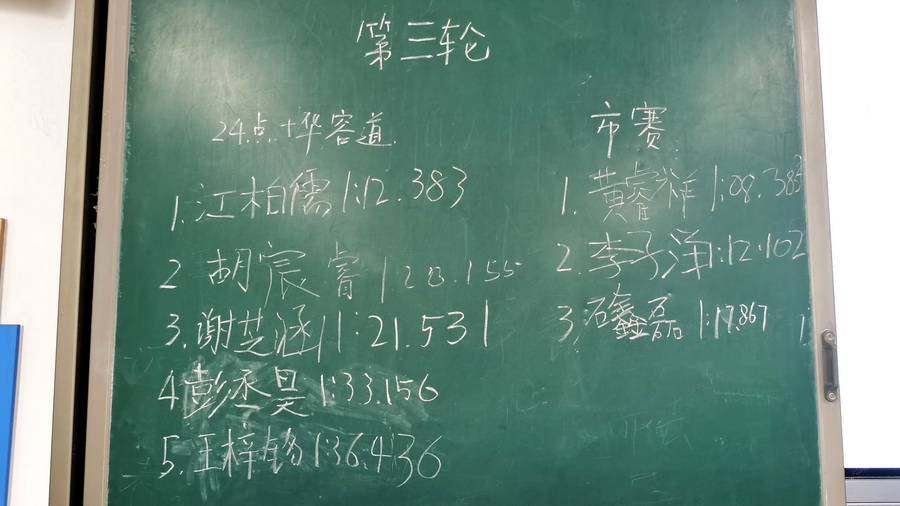 第三轮
24点+华容道
1.江柏儒1:12.383
2 胡宸睿 1 20.155
3.谢芝涵1:21.531
4彭丞昊1:33.156
5.王梓锡1:36.436
市赛
1.黄睿祥1:08.385
2.李子洋1:12.102
3.石鑫磊1:17.867